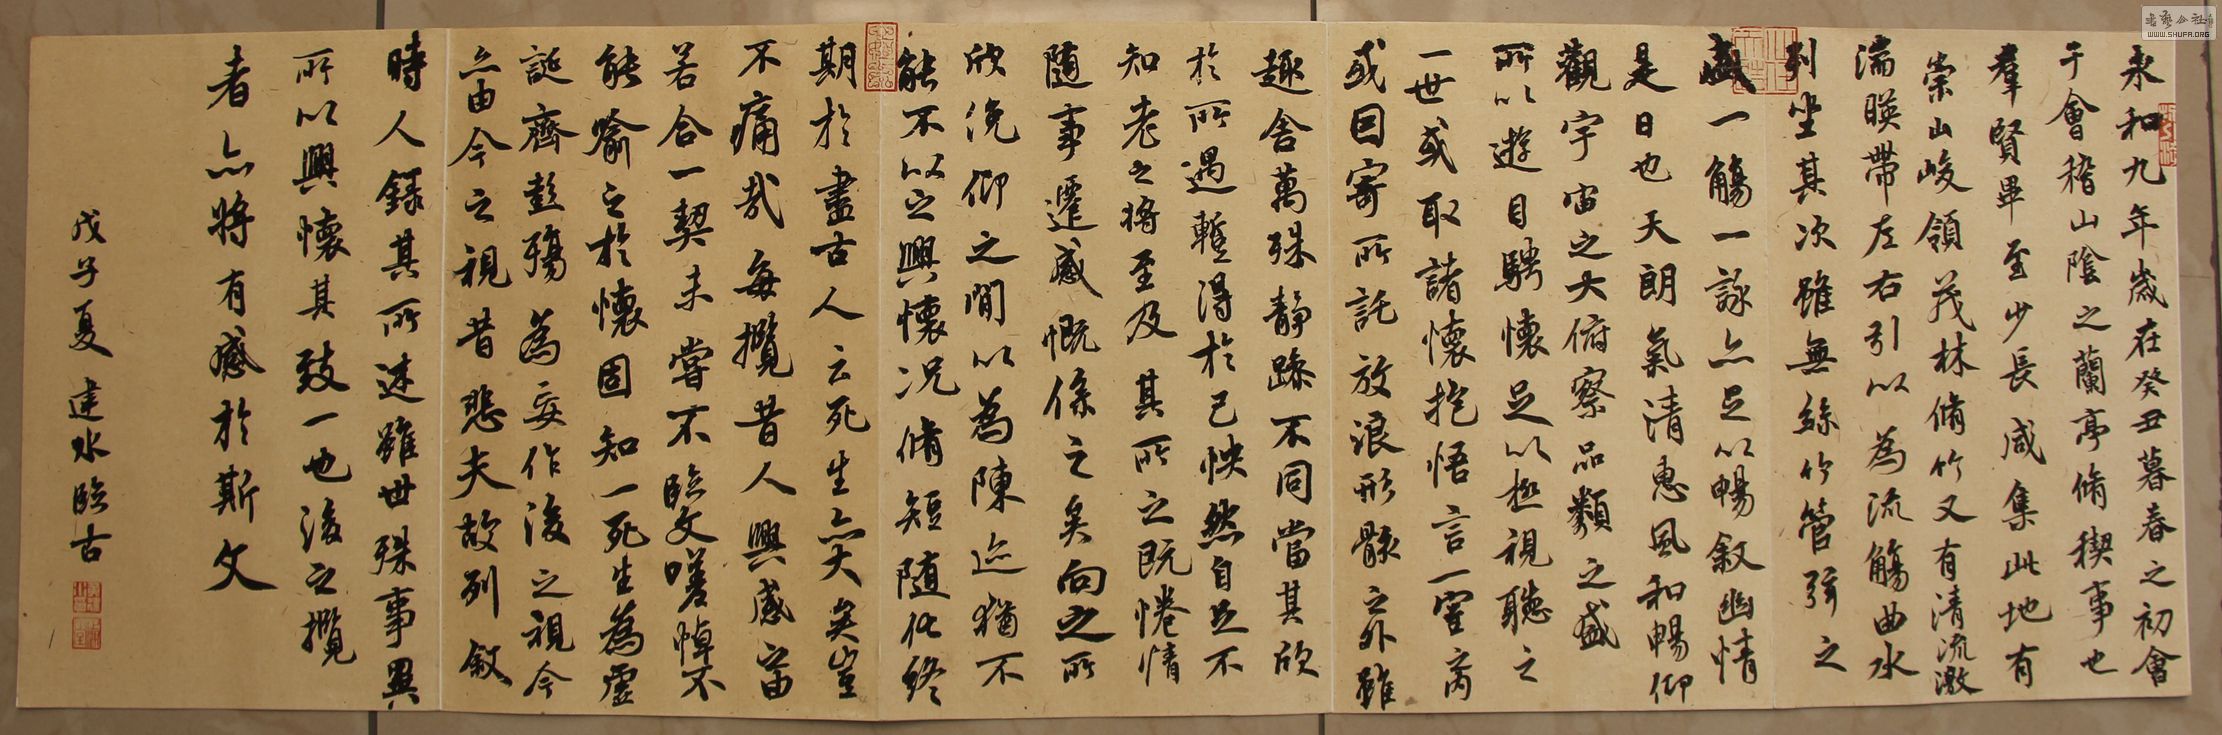 永和九年歲在癸丑暮春之初會
于會稽山陰之蘭亭脩稧事也
羣賢畢至少長咸集此地有
崇山峻領茂林脩竹又有清流激
湍暎帶左右引以為流觴曲水
列坐其次雖無絲竹管弦之
盛一觴一詠亦足以暢敘幽情
是日也天朗氣清惠風和暢仰
觀宇宙之大俯察品類之盛
所以遊目騁懷足以極視聽之
一世或取諸懷抱悟言一室內
或因寄所託放浪形骸之外雖
趣舍萬殊靜躁不同當其欣
於所遇蹔得於己怏然自足不
知老之將至及其所之既惓情
隨事遷感慨係之矣向之所
欣俛仰之閒以為陳迹猶不
能不以之興懷況脩短隨化終
期於盡古人云死生亦大矣豈
不痛哉每攬昔人興感之由
若合一契未嘗不臨文嗟悼不
能喻之於懷固知一死生為虛
誕齊彭殤為妄作後之視今
亦由今之視昔悲夫故列敘
時人錄其所述雖世殊事異
所以興懷其致一也後之攬
者亦將有感於斯文
戊子夏 建水臨古
書藝公社
WWW.SHUFA.ORG